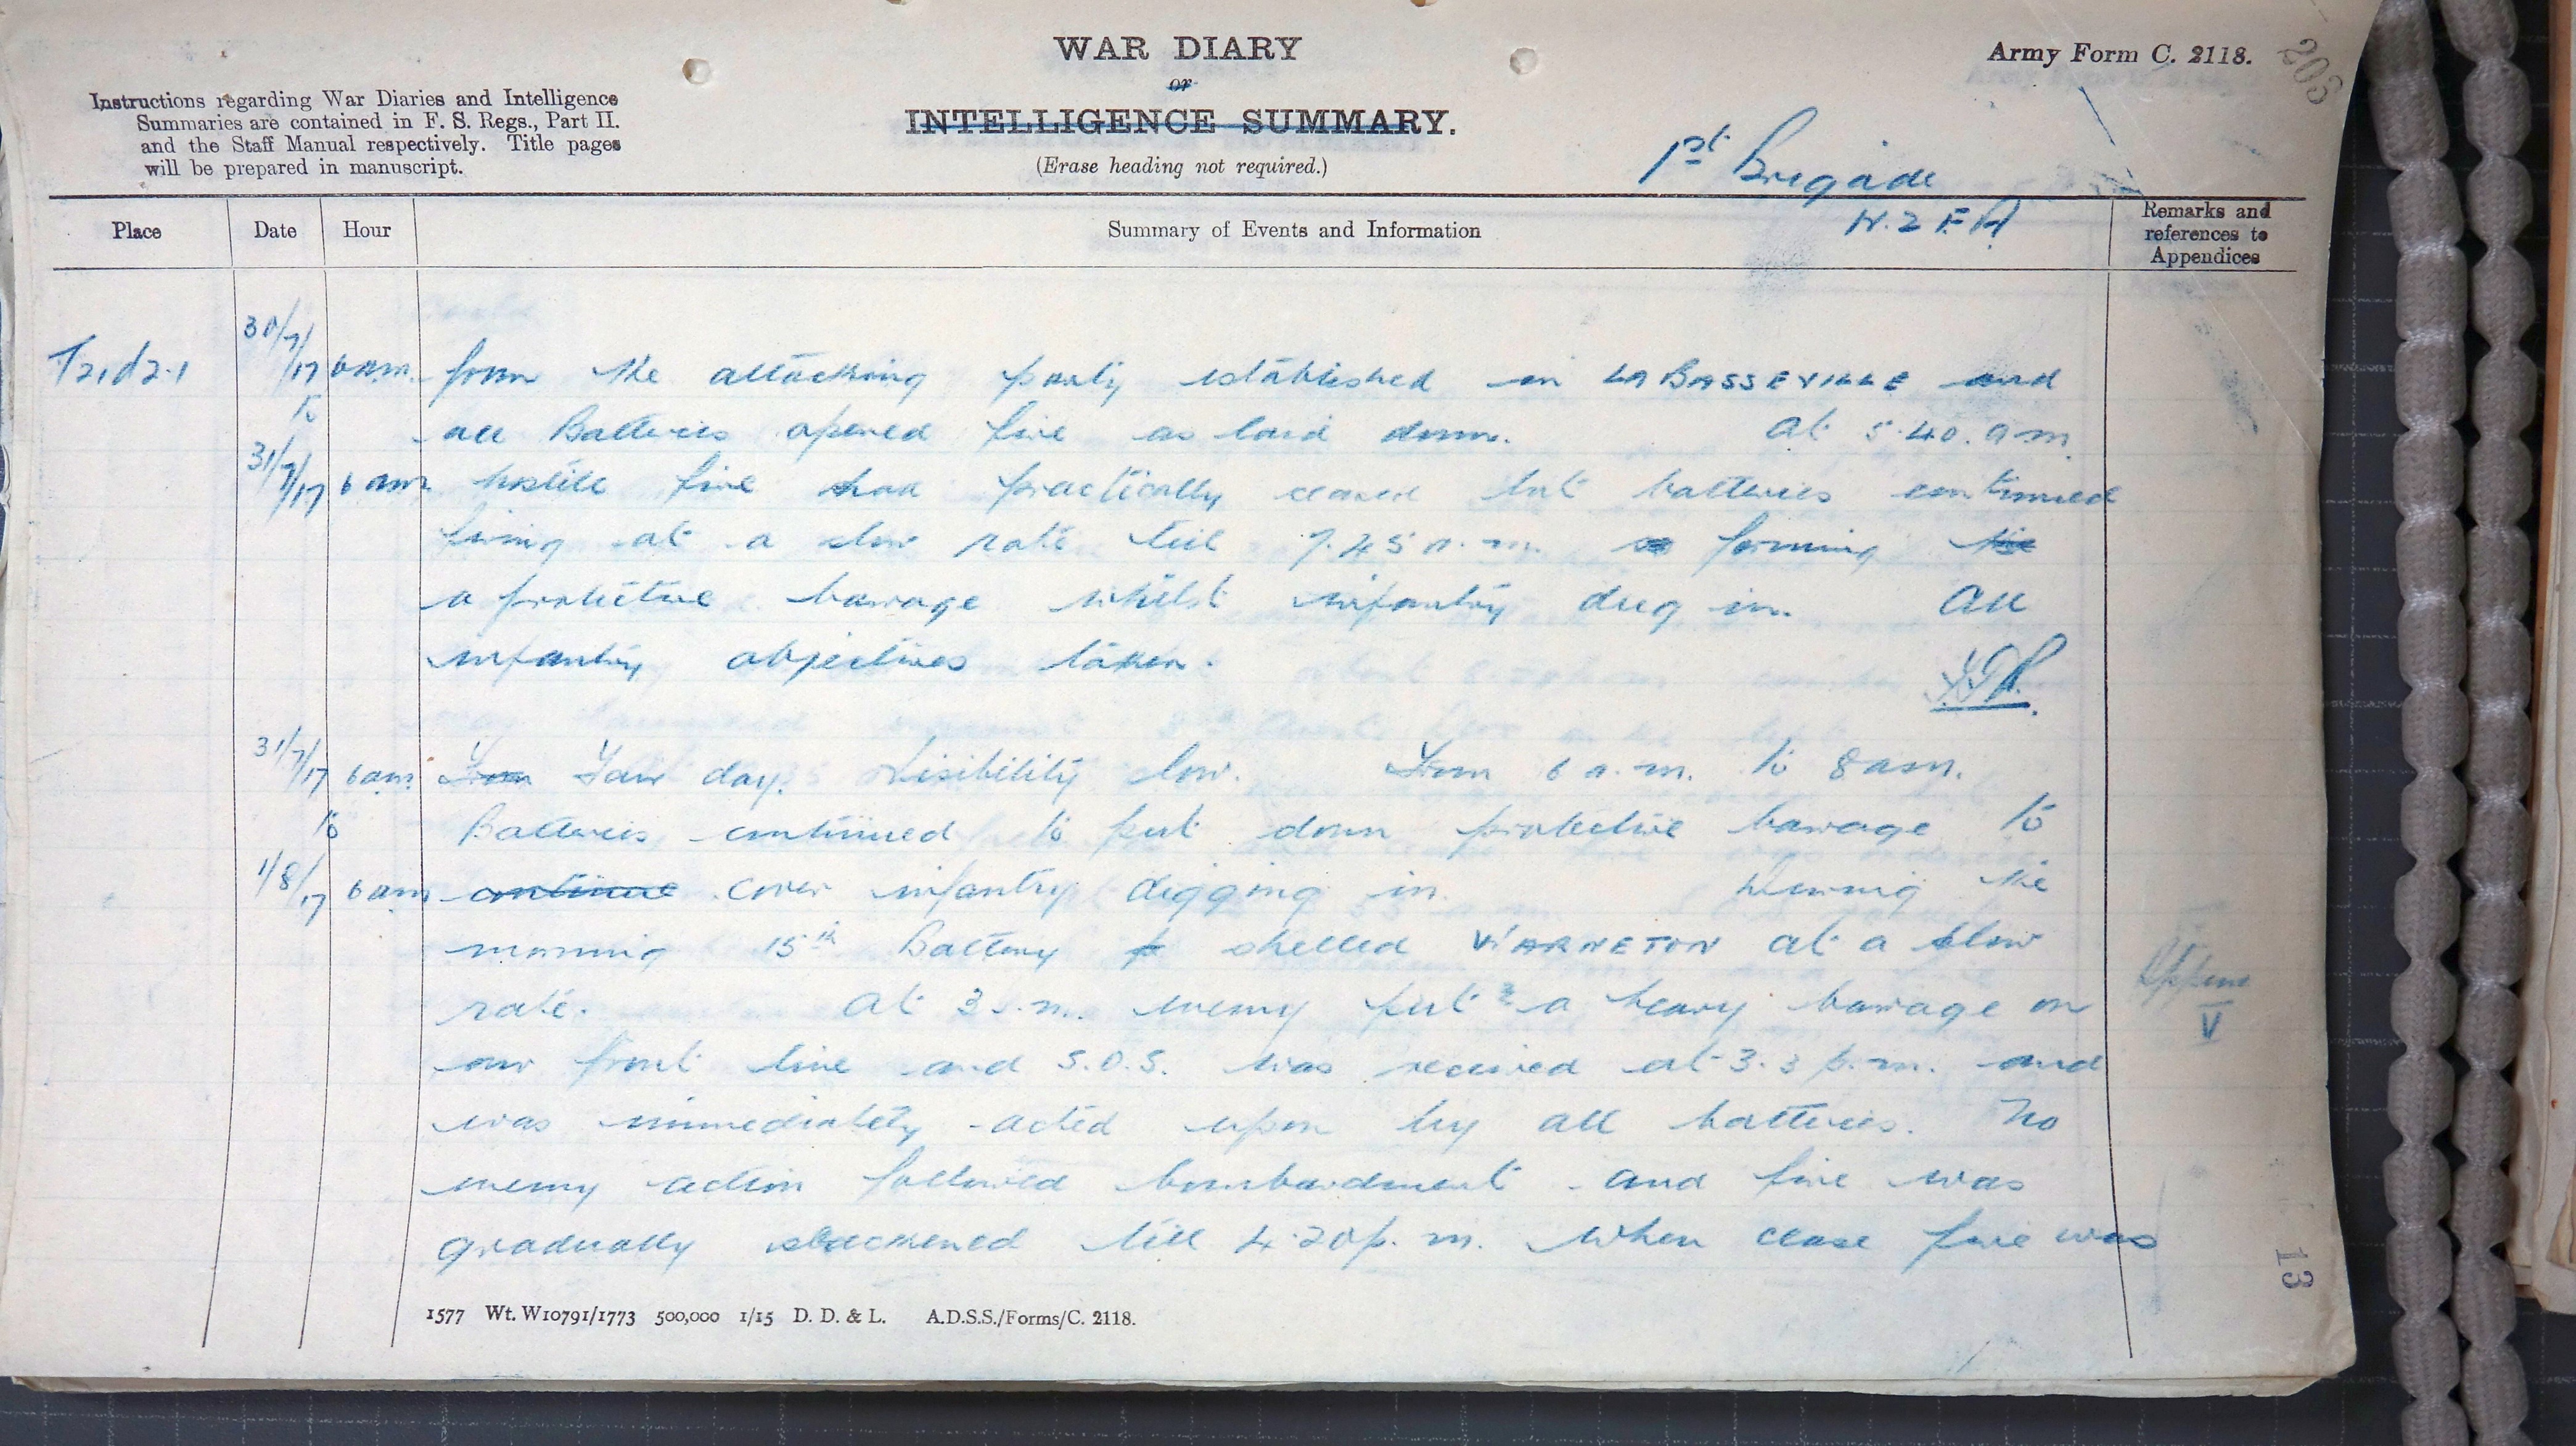 WAR DIARY
or
INTELLIGENCE SUMMARY.
(Erase heading not required.)
Army Form C. 2118.
203
Instructions regarding War Diaries and Intelligence
Summaries are contained in F. S. Regs., Part II.
and the Staff Manual respectively. Title pages
will be prepared in manuscript.
1st Brigade
N.Z.F.A
Place
Date
Hour
Summary of Events and Information
Remarks and
references to
Appendices
T21d2.1
30/7/17 6am. from the attacking party established in LA BASSEVILLE and
to
all Batteries opened fire as laid down. At 5.40. am
31/7/17 6am hostile fire had practically ceased but batteries continued
firing at a slow rate till 7.45 a.m. forming
a protective barrage whilst infantry dug in. All
infantry objectives taken.
31/7/17 6am From Fair day. Visibility low. From 6 a.m. to 8am.
to
Batteries continued to put down protective barrage to
1/8/17 6am continue cover infantry digging in. During the
morning 15th Battery shelled WARNETON at a slow
rate. At 3 p.m. enemy put a heavy barrage on
our front line and S.O.S. was received at 3.3 p.m. and
was immediately acted upon by all batteries. No
enemy action followed bombardment and fire was
gradually slackened till 4.20 p.m. when cease fire was
Appen
V
13
1577 Wt. W10791/1773 500,000 1/15 D. D. & L. A.D.S.S./Forms/C. 2118.